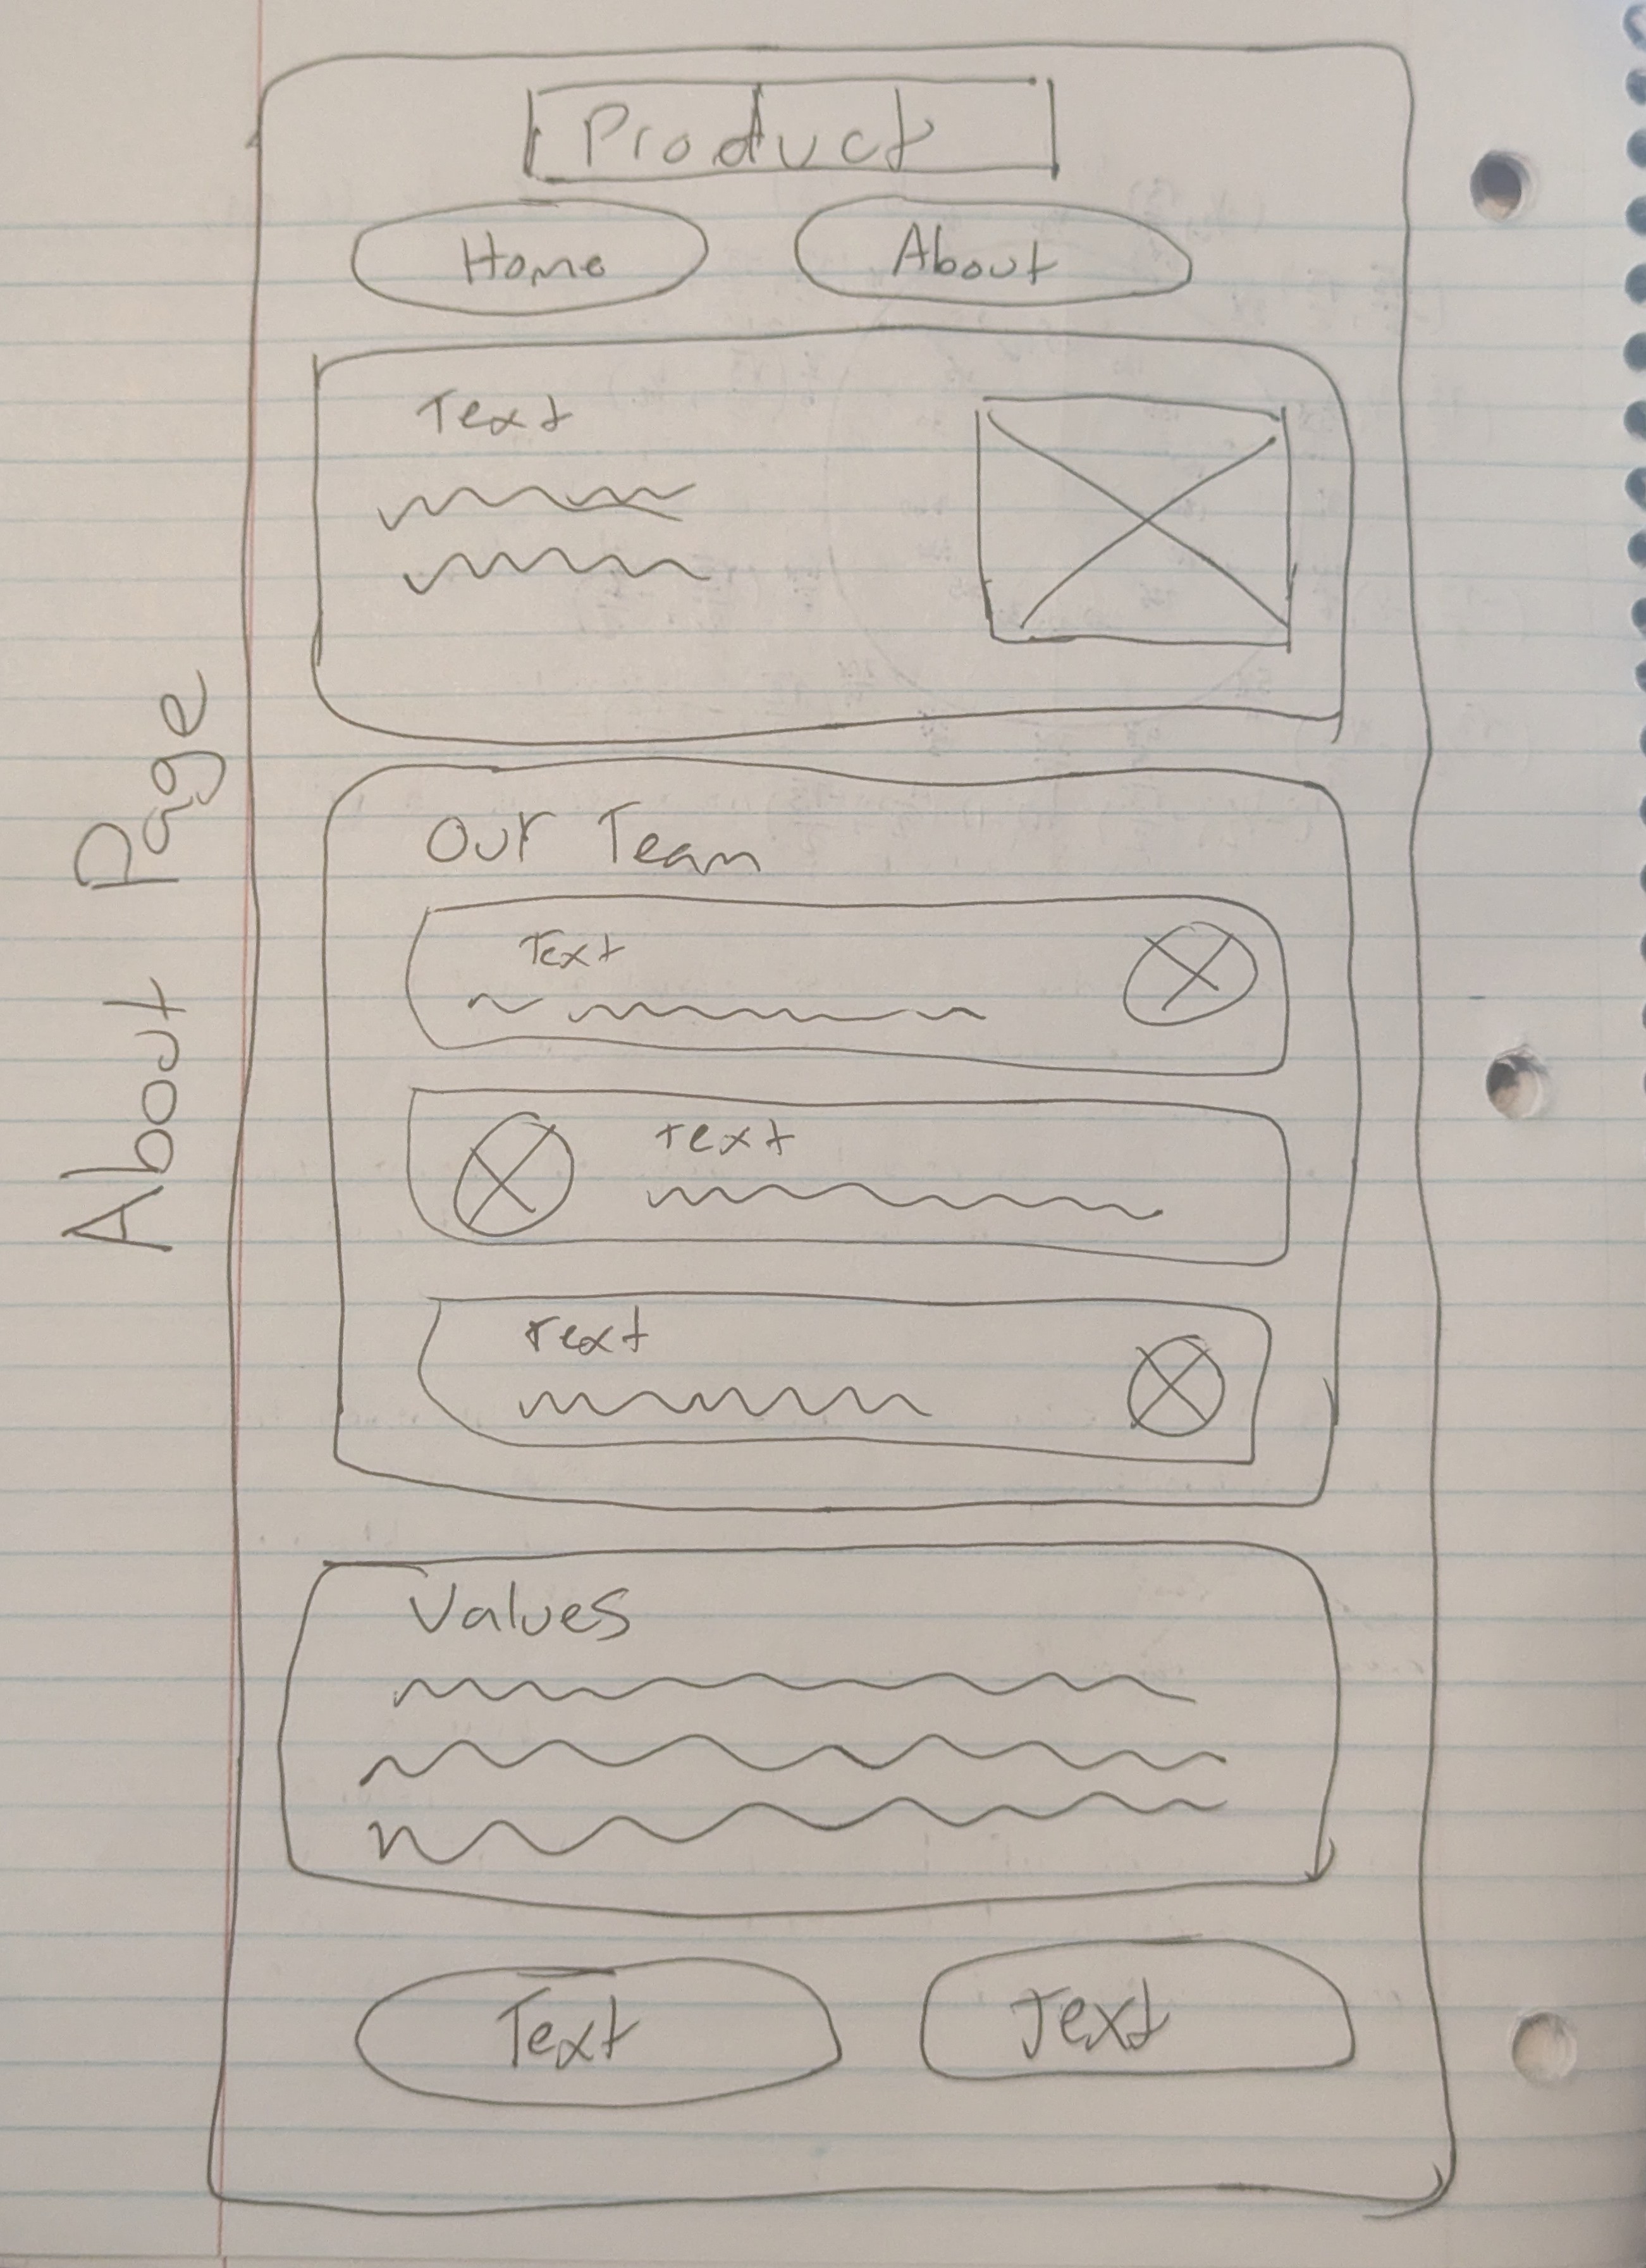 About Page
Product
Home About
Text
Our Team
Text
Text
Text
Values
Text Text